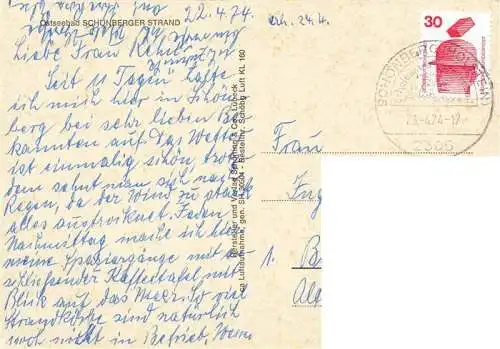 22.4.74
Ostseebad SCHÖNBERGER STRAND
Liebe Frau
Seit 11 Tagen halte
ich mich hier in Schön
berg bei sehr lieben Be
kannten auf. Das Wetter
ist einmalig schön, trotz
dem sehnt man sich nach
Regen, da der Wind zu stark
alles austrocknet. Jeden
Nachmittag mache ich hier
meine Spaziergänge mit an
schließender Kaffeetafel mit
Blick auf das Meer. So viel
Strandkörbe sind natürlich
noch nicht in Betrieb. Wenn
Hersteller und Verlag Schöning & Co., Lübeck
Luftaufnahme, gen. SH
Bestellnr. Schöbg Luft KL 160
erh. 24.4.
30
23.-4.74-17
2305
Frau
1.